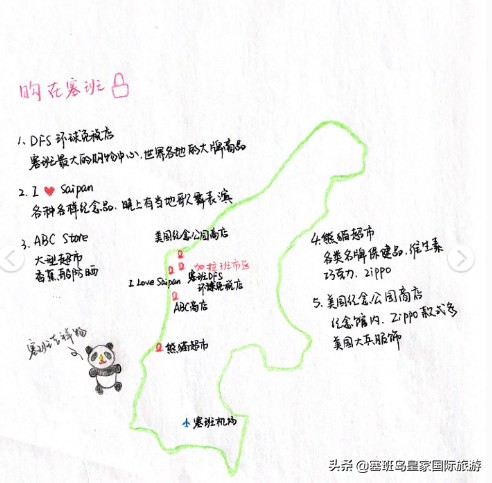 购在塞班
1. DFS 环球免税店
塞班最大的购物中心.世界各地的大牌商品
2. I ❤ Saipan
各种各样纪念品.晚上有当地歌舞表演
3. ABC Store
大型超市
香蕉船防晒
美国纪念公园商店
加拉班市区
I Love Saipan
塞班DFS
环球免税店
ABC商店
熊猫超市
塞班机场
塞班吉祥物
4.熊猫超市
各类名牌保健品.维生素
巧克力. Zippo
5. 美国纪念公园商店
纪念馆内. Zippo款式多
美国大兵服饰
头条@塞班岛皇家国际旅游